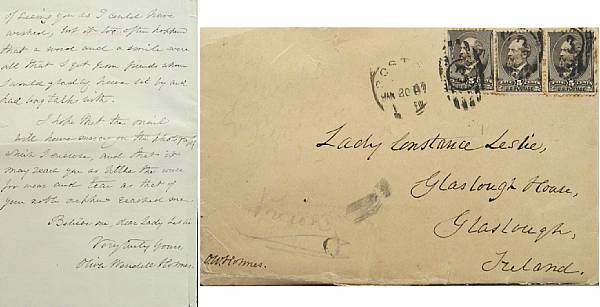 of seeing you as I could have
wished, but it too often happens
that a word and a smile were
all that I got from friends whom
I would gladly have sat by and
had long talk with.
I hope that the mail
will have mercy on the photograph
which I enclose, and that it
may reach you as little the worse
for wear and tear as that of
your noth orphan reached me.
Believe me, dear Lady Leslie
Very truly Yours,
Oliver Wendell Holmes.
BOST
JAN 20 87
Lady Constance Leslie,
Glaslough House,
Glaslough,
Ireland.
O.W. Holmes.